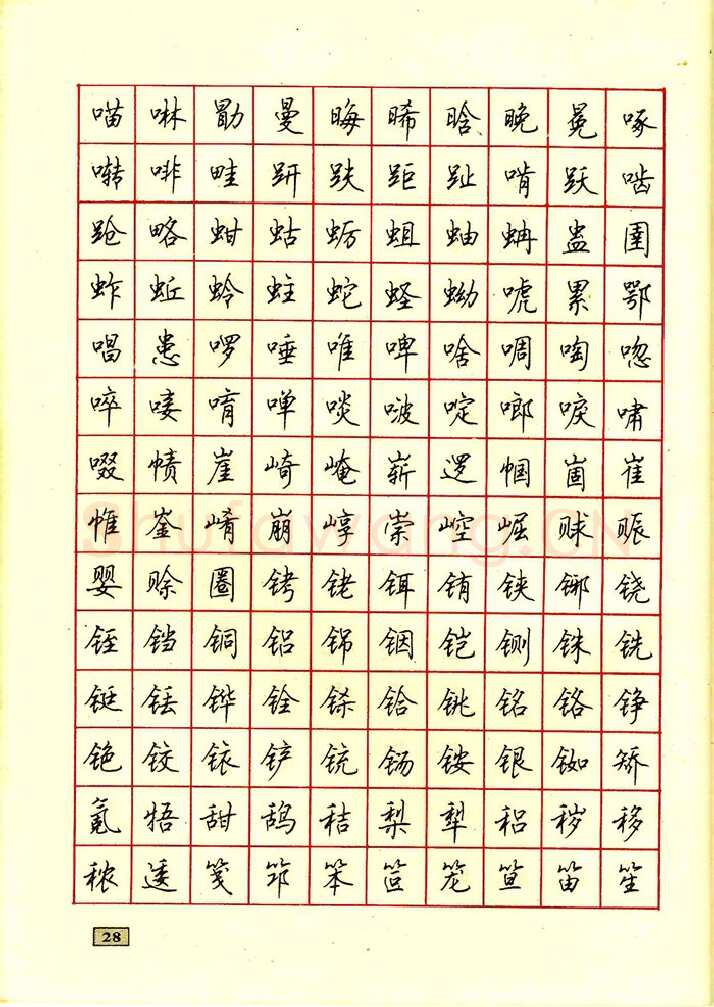 喵啉勖曼晦晞晗晚冕啄
啭啡畦趼趺距趾啃跃啮
跄略蚶蛄蛎蛆蚰蚺蛊圉
蚱蚯蛉蛀蛇蛏蚴唬累鄂
唱患啰唾唯啤啥啁啕唿
啐唼唷啴啖啵啶啷唳啸
啜帻崖崎崦崭逻帼崮崔
帷崟崤崩崞崇崆崛赇赈
婴赊圈铐铑铒铕铗铘铙
铚铛铜铝锦铟铠铡铢铣
铤铥铧铨铩铪铫铭铬铮
铯铰铱铲铳铴铵银铷矫
氪牾甜鸹秸梨犁稆秽移
秾逶笺筇笨笸笼笪笛笙
28
Shufawang.CN